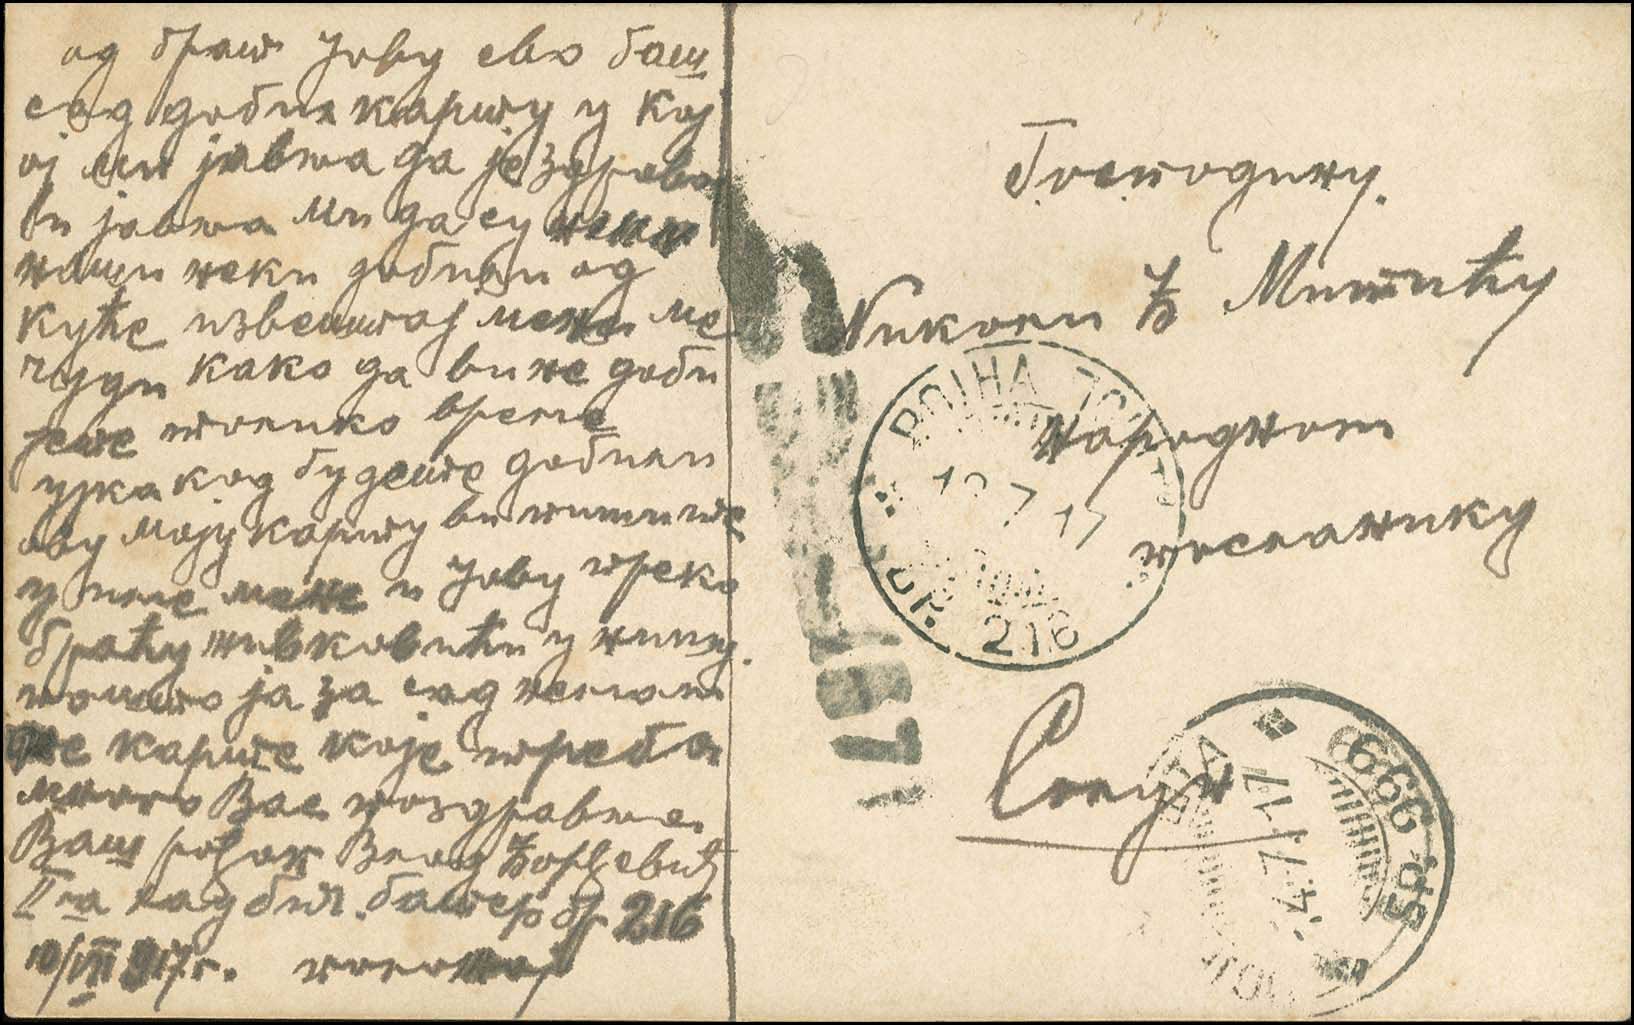 од брат Јову ево баш
сад добих карту у кој
ој ми јавља да је здраво
ви јавља ми да су
наши неки добили од
куће извештај мени ме
чуди како да ви не доби
јете толико време
ујка кад будете добили
ову моју карту ви пишите
у име мене и Јову преко
браћу Живковићи у
пошто ја за сад немам
те карте које треба
много Вас поздравља
Ваш рођак Влад Ђорђевић
II га хауб. батер бр 216
10/VII 917 г. положај
Господину.
Николи Ђ Митићу
народном
посланику
Солун
ВОЈНА ПОШТА
10 7 17
БР. 216
ПОШТА
.4.7.17
БР. 999